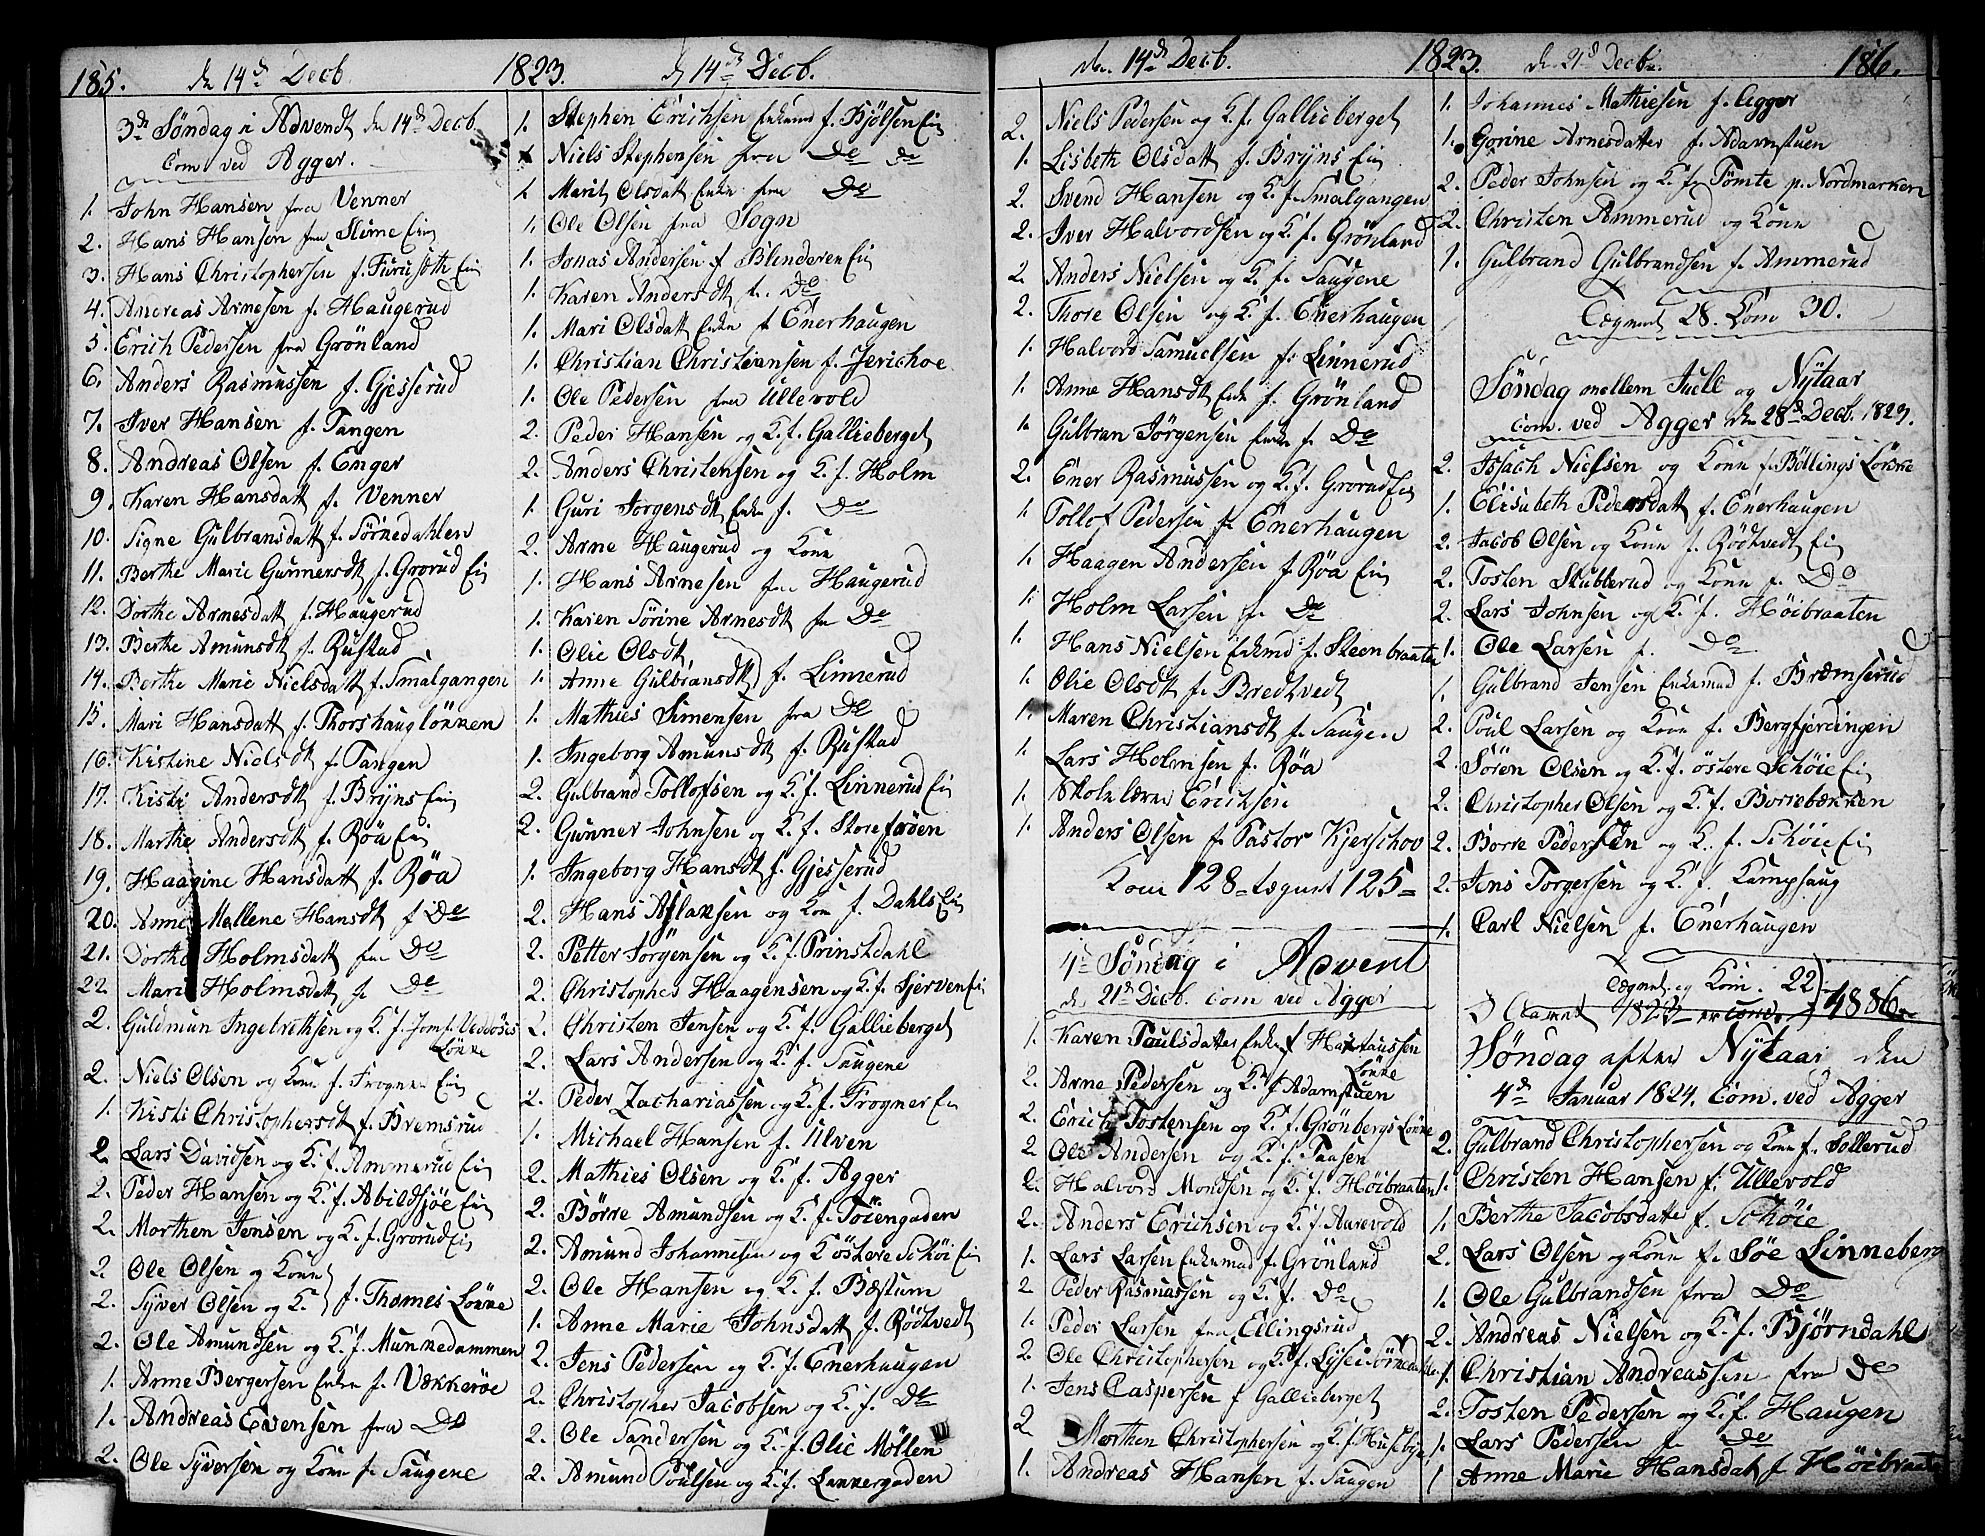 185. d. 14de Decb. 1823. d. 14de Decb.
3de Søndag i Advendt den 14de Decb.
Com ved Agger.
1. John Hansen fra Venner
2. Hans Hansen fra Eie
3. Hans Christophersen f. Furusæth Eie
4. Andreas Arnesen f. Haugerud
5. Erich Pedersen fra Grönland
6. Anders Rasmussen f. Gjesserud
7. Iver Hansen f. Tangen
8. Andreas Olsen f. Enger
9. Karen Hansdatt f. Venner
10. Signe Gulbransdatt f. Sörkedahlen
11. Berthe Marie Gunnersdt f. Grorud Eie
12. Dorthe Arnesdatt f. Haugerud
13. Berthe Amunsdt f. Rustad
14. Berthe Marie Nielsdatt f. Smalgangen
15. Mari Hansdatt f. Thorshauglökken
16. Kistine Nielsdt f. Tangen
17. Kisti Andersdt f. Bryns Eie
18. Marthe Andersdt f. Röa Eie
19. Haagine Hansdatt f. Röa
20. Anne Mallene Hansdt f. Do
21. Dorthe Holmsdatt fra Do
22. Mari Holmsdatt f. Do
2. Guldmun Ingebrethsen og K. f. Jomf. Veddøses
Lökke
2. Niels Olsen og Kone f. Frogner Eie
1. Kisti Christophersdt f. Bremsrud
2. Lars Davidsen og K. f. Ammerud Eie
2. Peder Hansen og K. f. Abildsjöe Eie
2. Morthen Jensen og K. f. Grorud Eie
2. Ole Olsen og Kone
2. Syver Olsen og K. f. Thomes Lökke
2. Ole Amundsen og K. f. Munkedammen
1. Anne Bergersen Enke f. Vækkeröe
1. Andreas Evensen fra Do
2. Ole Syversen og Kone f. Saugene
1. Stephen Erichsen Enkemd f. Bjölsen Eie
1. Niels Stephensen fra Do Do
1. Marit Olsdatt Enke fra Do
1. Ole Olsen fra Sogn
1. Jonas Andersen f. Blinderen Eie
1. Karen Andersdt f. Do
1. Mari Olsdatt Enke f. Enerhaugen
1. Christian Christiansen f. Jerichoe
1. Ole Pedersen fra Ullevold
2. Peder Hansen og K. f. Gallieberget
2. Anders Christensen og K. f. Holm
1. Guri Jorgensdt Enke f. Do
2. Arne Haugerud og Kone
1. Hans Arnesen fra Haugerud
1. Karen Sörine Arnesdt fra Do
1. Olie Olsdt
1. Anne Gulbransdt f. Linnerud
1. Mathies Simensen fra Do
1. Ingeborg Amunsdt f. Rustad
2. Gulbrand Tollofsen og K. f. Linnerud Eie
2. Gunner Johnsen og K. f. Storefröen
1. Ingeborg Hansdt f. Gjesserud
2. Hans Aslaksen og Kone f. Dahls Eie
2. Petter Jorgensen og K. f. Prinsdahl
2. Christopher Haagensen og K. f. Sjerven Eie
2. Christen Jensen og K. f. Gallieberget
2. Lars Andersen og K. f. Saugene
2. Peder Zachariassen og K. f. Frogner Eie
1. Michael Hansen f. Ulven
2. Mathies Olsen og K. f. Agger
2. Börre Amundsen og K. f. Töiengaden
2. Amund Johannesen og K. östere Schöi Eie
2. Ole Hansen og K. f. Bæstum
1. Anne Marie Johnsdatt f. Rödtvedt
2. Jens Pedersen og K. f. Enerhaugen
2. Christopher Jacobsen og K. f. Do
2. Ole Sandersen og K. f. Olie Möllen
2. Amund Poulsen og K. f. Lakkergaden
den 14de Decb. 1823. den 21de Decbr. 186.
2. Niels Pedersen og K. f. Gallieberget
1. Lisbeth Olsdatt f. Bryns Eie
2. Svend Hansen og K. f. Smalgangen
2. Iver Halvordsen og K. f. Grönland
2. Anders Nielsen og K. f. Saugene
2. Thore Olsen og K. f. Enerhaugen
1. Halvord Samuelsen f. Linnerud
1. Anne Hansdt Enke f. Grönland
1. Gulbran Jörgensen Enke f. Do
2. Ener Rasmussen og K. f. Grorud Eie
1. Tollof Pedersen f. Enerhaugen
1. Haagen Andersen f. Röa Eie
1. Holm Larsen f. Do
1. Hans Nielsen Enkemd f. Steenbraaten
1. Olie Olsdt f. Bredtvedt
1. Maren Christiansdt f. Saugen
1. Lars Holmsen f. Röa
1. Skolelærer Erichsen
1. Anders Olsen f. Pastor Kjerschov
Kom 128 tegnet 125
4de Søndag i Advent
d. 21de Decb. Com ved Agger
1. Karen Poulsdatter Enke f.
Lökke
2. Arne Pedersen og K. f. Adamstuen
2. Erich Tostensen og K. f. Grönbergs Lökke
2. Ole Andersen og K. f. Taasen
2. Halvord Mondsen og K. f. Höibraaten
2. Anders Erichsen og K. f. Aurevold
1. Lars Larsen Enkemad f. Grönland
2. Peder Rasmussen og K. f. Do
1. Peder Larsen fra Ellingsrud
2. Ole Christophersen og K. f.
1. Jens Caspersen f. Gallieberget
2. Morthen Christophersen og K. f. Husebye
1. Andreas Hansen f. Saugen
1. Johannes Mathiesen f. Agger
1. Gorine Arnesdatter f. Adamstuen
2. Peder Johnsen og K. f. Tömte p. Nordmarken
2. Christen Ammerud og Kone
1. Gulbrand Gulbrandsen f. Ammerud
Tegnet 28. Kom 30.
Søndag mellem Juell og Nytaar
com. ved Agger den 28de Decb. 1823.
2. Issach Nielsen og Kone f. Böllings Lökke
1. Elisabeth Pedersdatt f. Enerhaugen
2. Jacob Olsen og Kone f. Rödtvedt Eie
2. Tosten Stubberud og Kone f. Do
2. Lars Johnsen og K. f. Höibraaten
1. Ole Larsen f. Do
1. Gulbrand Jensen Enkemad f. Bræmserud
2. Poul Larsen og Kone f. Bergfjerdingen
2. Sören Olsen og K. f. östere Schöie Eie
2. Christopher Olsen og K. f. Borrebækken
2. Borre Pedersen og K. f. Schöie Eie
2. Jens Torgersen og K. f. Kamphaug
1. Carl Nielsen f. Enerhaugen
Tegnet og Kom. 22
1823 4886
Søndag after Nytaar den
4de Januar 1824. Com. ved Agger
2. Gulbrand Christophersen og Kone f. Sollerud
1. Christen Hansen f. Ullevold
1. Berthe Jacobsdatter f. Schöie
2. Lars Olsen og Kone f. Söe Linneberg
1. Ole Gulbrandsen fra Do
2. Andreas Nielsen og K. f. Bjørndahl
1. Christian Andreassen fra Do
2. Tosten Pedersen og K. f. Haugen
1. Lars Pedersen fr Do
1 Anne Marie Hansdatt f Höibraaten